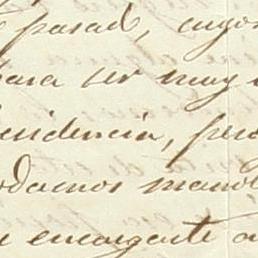 pasad, cuyo
para ser muy
sidencia, pero
odamos mand
encargarte